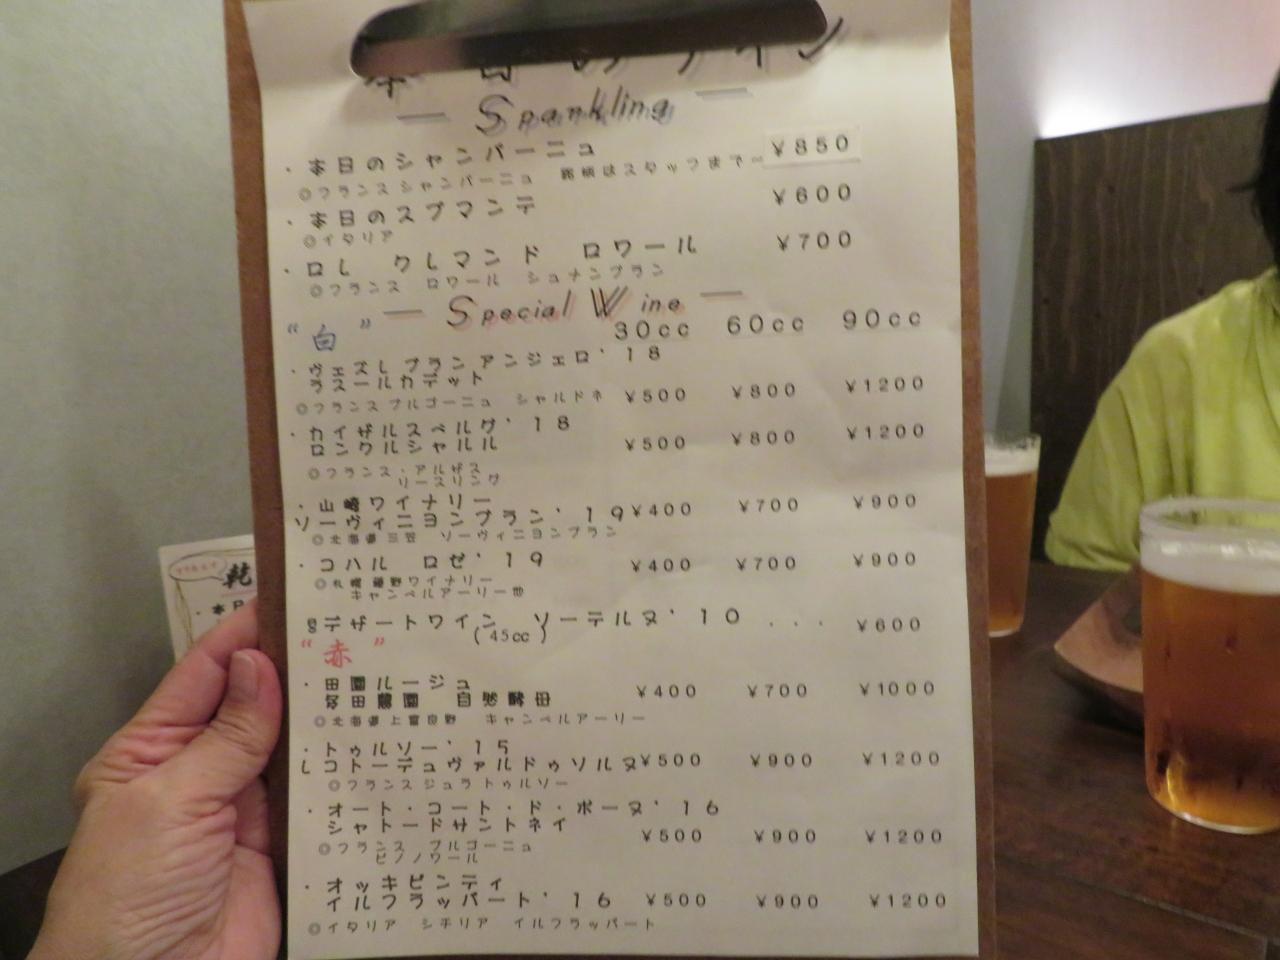 本日のワイン
Sparkling
・本日のシャンパーニュ ¥850
◎フランス シャンパーニュ 銘柄はスタッフまで〜
・本日のスプマンテ ¥600
◎イタリア
・ロレ クレマン ド ロワール ¥700
◎フランス ロワール シュナンブラン
Special Wine
"白" 30cc 60cc 90cc
・ヴェズレ ブラン アンジェロ'18
ラスールカデット ¥500 ¥800 ¥1200
◎フランス ブルゴーニュ シャルドネ
・カイザルスベルグ'18
ロンクルシャルル ¥500 ¥800 ¥1200
◎フランス・アルザス
リースリング
・山﨑ワイナリー
ソーヴィニヨンブラン'19 ¥400 ¥700 ¥900
◎北海道 三笠 ソーヴィニヨンブラン
・コハル ロゼ'19 ¥400 ¥700 ¥900
◎札幌 藤野ワイナリー
キャンベルアーリー他
デザートワイン ソーテルヌ'10 ... ¥600
(45cc)
"赤"
・田園ルージュ
多田農園 自然酵母 ¥400 ¥700 ¥1000
◎北海道上富良野 キャンベルアーリー
・トゥルソー'15
レコトーデュヴァルドゥソルヌ ¥500 ¥900 ¥1200
◎フランス ジュラ トゥルソー
・オート・コート・ド・ボーヌ'16
シャトードサントネイ ¥500 ¥900 ¥1200
◎フランス ブルゴーニュ
ピノノワール
・オッキピンティ
イルフラッパート'16 ¥500 ¥900 ¥1200
◎イタリア シチリア イルフラッパート
乾
・本日